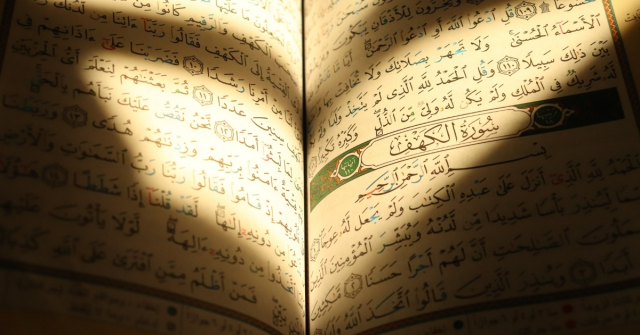 خُشُوعًا ۩ ﴿١٠٩﴾ قُلِ ادْعُوا اللَّهَ أَوِ ادْعُوا الرَّحْمَٰنَ
الْأَسْمَاءُ الْحُسْنَىٰ وَلَا تَجْهَرْ بِصَلَاتِكَ وَلَا تُخَافِتْ بِهَا
بَيْنَ ذَٰلِكَ سَبِيلًا ﴿١١٠﴾ وَقُلِ الْحَمْدُ لِلَّهِ الَّذِي لَمْ يَتَّخِذْ وَلَدًا
لَهُ شَرِيكٌ فِي الْمُلْكِ وَلَمْ يَكُنْ لَهُ وَلِيٌّ مِنَ الذُّلِّ وَكَبِّرْهُ تَكْبِيرًا
سُورَةُ الْكَهْفِ
بِسْمِ اللَّهِ الرَّحْمَٰنِ الرَّحِيمِ
الَّذِي أَنْزَلَ عَلَىٰ عَبْدِهِ الْكِتَابَ وَلَمْ يَجْعَلْ لَهُ عِوَجًا ﴿١﴾
لِيُنْذِرَ بَأْسًا شَدِيدًا مِنْ لَدُنْهُ وَيُبَشِّرَ الْمُؤْمِنِينَ الَّذِينَ
يَعْمَلُونَ الصَّالِحَاتِ أَنَّ لَهُمْ أَجْرًا حَسَنًا ﴿٢﴾ مَاكِثِينَ
أَبَدًا ﴿٣﴾ وَيُنْذِرَ الَّذِينَ قَالُوا اتَّخَذَ اللَّهُ
الْكَهْفِ وَالرَّقِيمِ كَانُوا مِنْ
إِلَى الْكَهْفِ فَقَالُوا رَبَّنَا آتِنَا مِنْ
لَنَا مِنْ أَمْرِنَا رَشَدًا ﴿١٠﴾ فَضَرَبْنَا عَلَىٰ آذَانِهِمْ فِي
سِنِينَ عَدَدًا ﴿١١﴾ ثُمَّ بَعَثْنَاهُمْ لِنَعْلَمَ أَيُّ الْحِزْبَيْنِ
لِمَا لَبِثُوا أَمَدًا ﴿١٢﴾ نَحْنُ نَقُصُّ عَلَيْكَ نَبَأَهُمْ بِالْحَقِّ
فِتْيَةٌ آمَنُوا بِرَبِّهِمْ وَزِدْنَاهُمْ هُدًى ﴿١٣﴾ وَرَبَطْنَا
قُلُوبِهِمْ إِذْ قَامُوا فَقَالُوا رَبُّنَا رَبُّ السَّمَاوَاتِ وَالْأَرْضِ
مِنْ دُونِهِ إِلَٰهًا لَقَدْ قُلْنَا إِذًا شَطَطًا ﴿١٤﴾
اتَّخَذُوا مِنْ دُونِهِ آلِهَةً لَوْلَا يَأْتُونَ
فَمَنْ أَظْلَمُ مِمَّنِ افْتَرَىٰ عَلَى اللَّهِ كَذِبًا